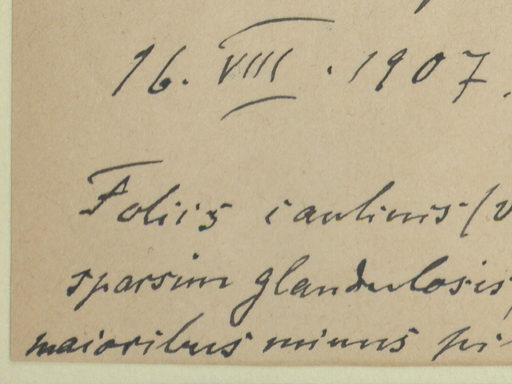 16. VIII. 1907.
Foliis caulinis (v
sparsim glandulosis,
maioribus minus pi